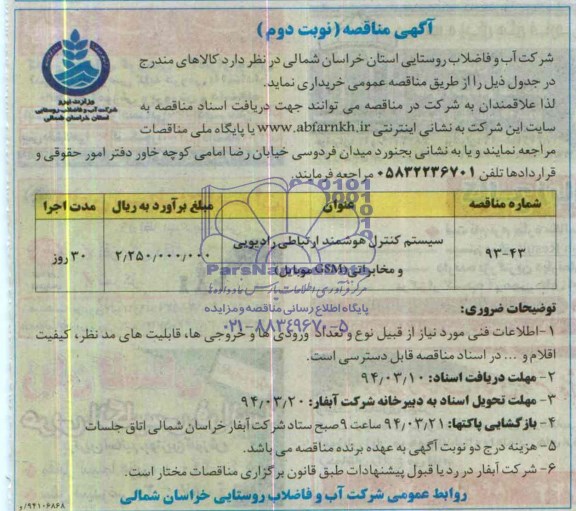 آگهی مناقصه (نوبت دوم)
وزارت نیرو
شرکت آب و فاضلاب روستایی
استان خراسان شمالی
شرکت آب و فاضلاب روستایی استان خراسان شمالی در نظر دارد کالاهای مندرج
در جدول ذیل را از طریق مناقصه عمومی خریداری نماید.
لذا علاقمندان به شرکت در مناقصه می توانند جهت دریافت اسناد مناقصه به
سایت این شرکت به نشانی اینترنتی www.abfarnkh.ir یا پایگاه ملی مناقصات
مراجعه نمایند و یا به نشانی بجنورد میدان فردوسی خیابان رضا امامی کوچه خاور دفتر امور حقوقی و
قراردادها تلفن ۰۵۸۳۲۲۳۶۷۰۱ مراجعه فرمایند.
شماره مناقصه عنوان مبلغ برآورد به ریال مدت اجرا
۹۳-۴۳ سیستم کنترل هوشمند ارتباطی رادیویی و مخابراتی (GSM موبایل) ۲٫۲۵۰٫۰۰۰٫۰۰۰ ۳۰ روز
ParsNamadData
مرکز فرآوری اطلاعات پارس نماد داده ها
پایگاه اطلاع رسانی مناقصه و مزایده
۰۲۱-۸۸۳۴۹۶۷۰-۵
توضیحات ضروری:
۱-اطلاعات فنی مورد نیاز از قبیل نوع و تعداد ورودی ها و خروجی ها، قابلیت های مد نظر، کیفیت
اقلام و ... در اسناد مناقصه قابل دسترسی است.
۲- مهلت دریافت اسناد: ۹۴/۰۳/۱۰
۳- مهلت تحویل اسناد به دبیرخانه شرکت آبفار: ۹۴/۰۳/۲۰
۴- بازگشایی پاکتها: ۹۴/۰۳/۲۱ ساعت ۹ صبح ستاد شرکت آبفار خراسان شمالی اتاق جلسات
۵- هزینه درج دو نوبت آگهی به عهده برنده مناقصه می باشد.
۶- شرکت آبفار در رد یا قبول پیشنهادات طبق قانون برگزاری مناقصات مختار است.
روابط عمومی شرکت آب و فاضلاب روستایی خراسان شمالی
۹۴۱۰۶۸۶۸/و